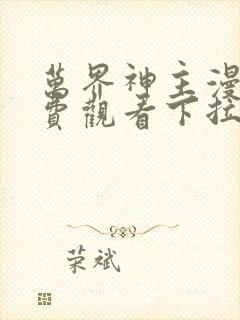 萬界神主漫
費觀看下拉
荣斌